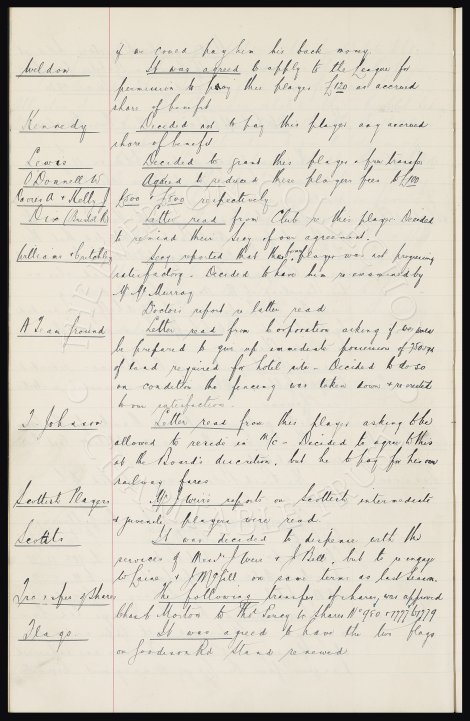 if we could pay him his back money.
Weldon It was agreed to apply to the League for
permission to pay this player £120 as accrued
share of benefit
Kennedy Decided not to pay this player any accrued
share of benefit
Lewis Decided to grant this player a free transfer
O'Donnell W Agreed to reduce these players fees to £100
Davies A & Kelly J £500 & £500 respectively
Dix (Bristol R) Letter read from Club re this player. Decided
to remind their Secy of our agreement.
Williams Secy reported that the player was not progressing
satisfactory. Decided to have him re-examined by
Mr McMurray
Doctors report re latter read
Ground Letter read from Corporation asking if we would
be prepared to give up immediate possession of
of land required for hotel site - Decided to do so
on condition the fencing was taken down & re-erected
to our satisfaction.
T. Johnson Letter read from this player asking to be
allowed to reside in M/C - Decided to agree to this
at the Board's discretion, but he to pay for his own
railway fares
Scottish Players Mr J Weir's reports on Scottish intermediate
& juvenile players were read.
Scouts It was decided to dispense with the
services of Messrs J Weir & J Bell, but to re-engage
to Laing & J McGill on same terms as last season.
Transfer of Shares The following transfer of shares was approved
Chas E Morton to Thos Percy 60 Shares No 950
Flags It was agreed to have the two flags
on Goodison Rd Stand renewed